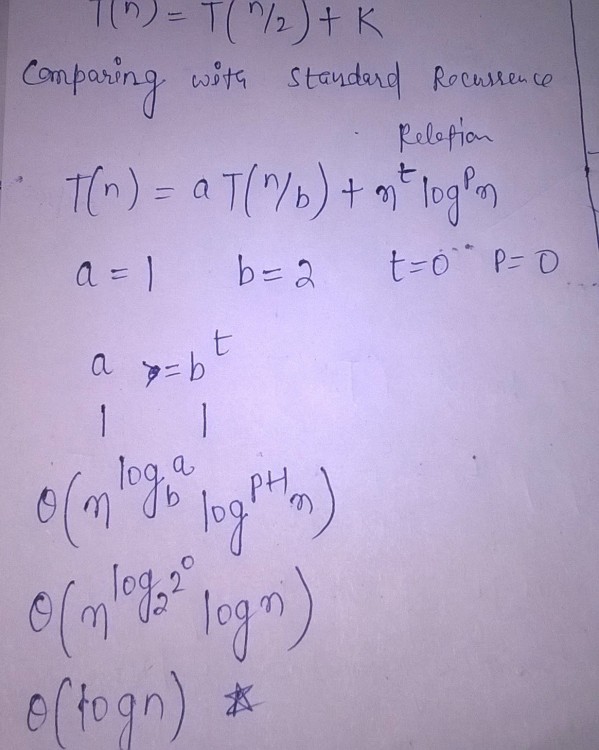 T(n) = T(n/2) + K
Comparing with Standard Recussence
Relation
T(n) = a T(n/b) + n^t log^p n
a = 1 b = 2 t = 0 P = 0
a = b^t
1 1
θ(n^log_b^a log^P+1 n)
θ(n^log_2 2^0 log n)
θ(log n) ☆